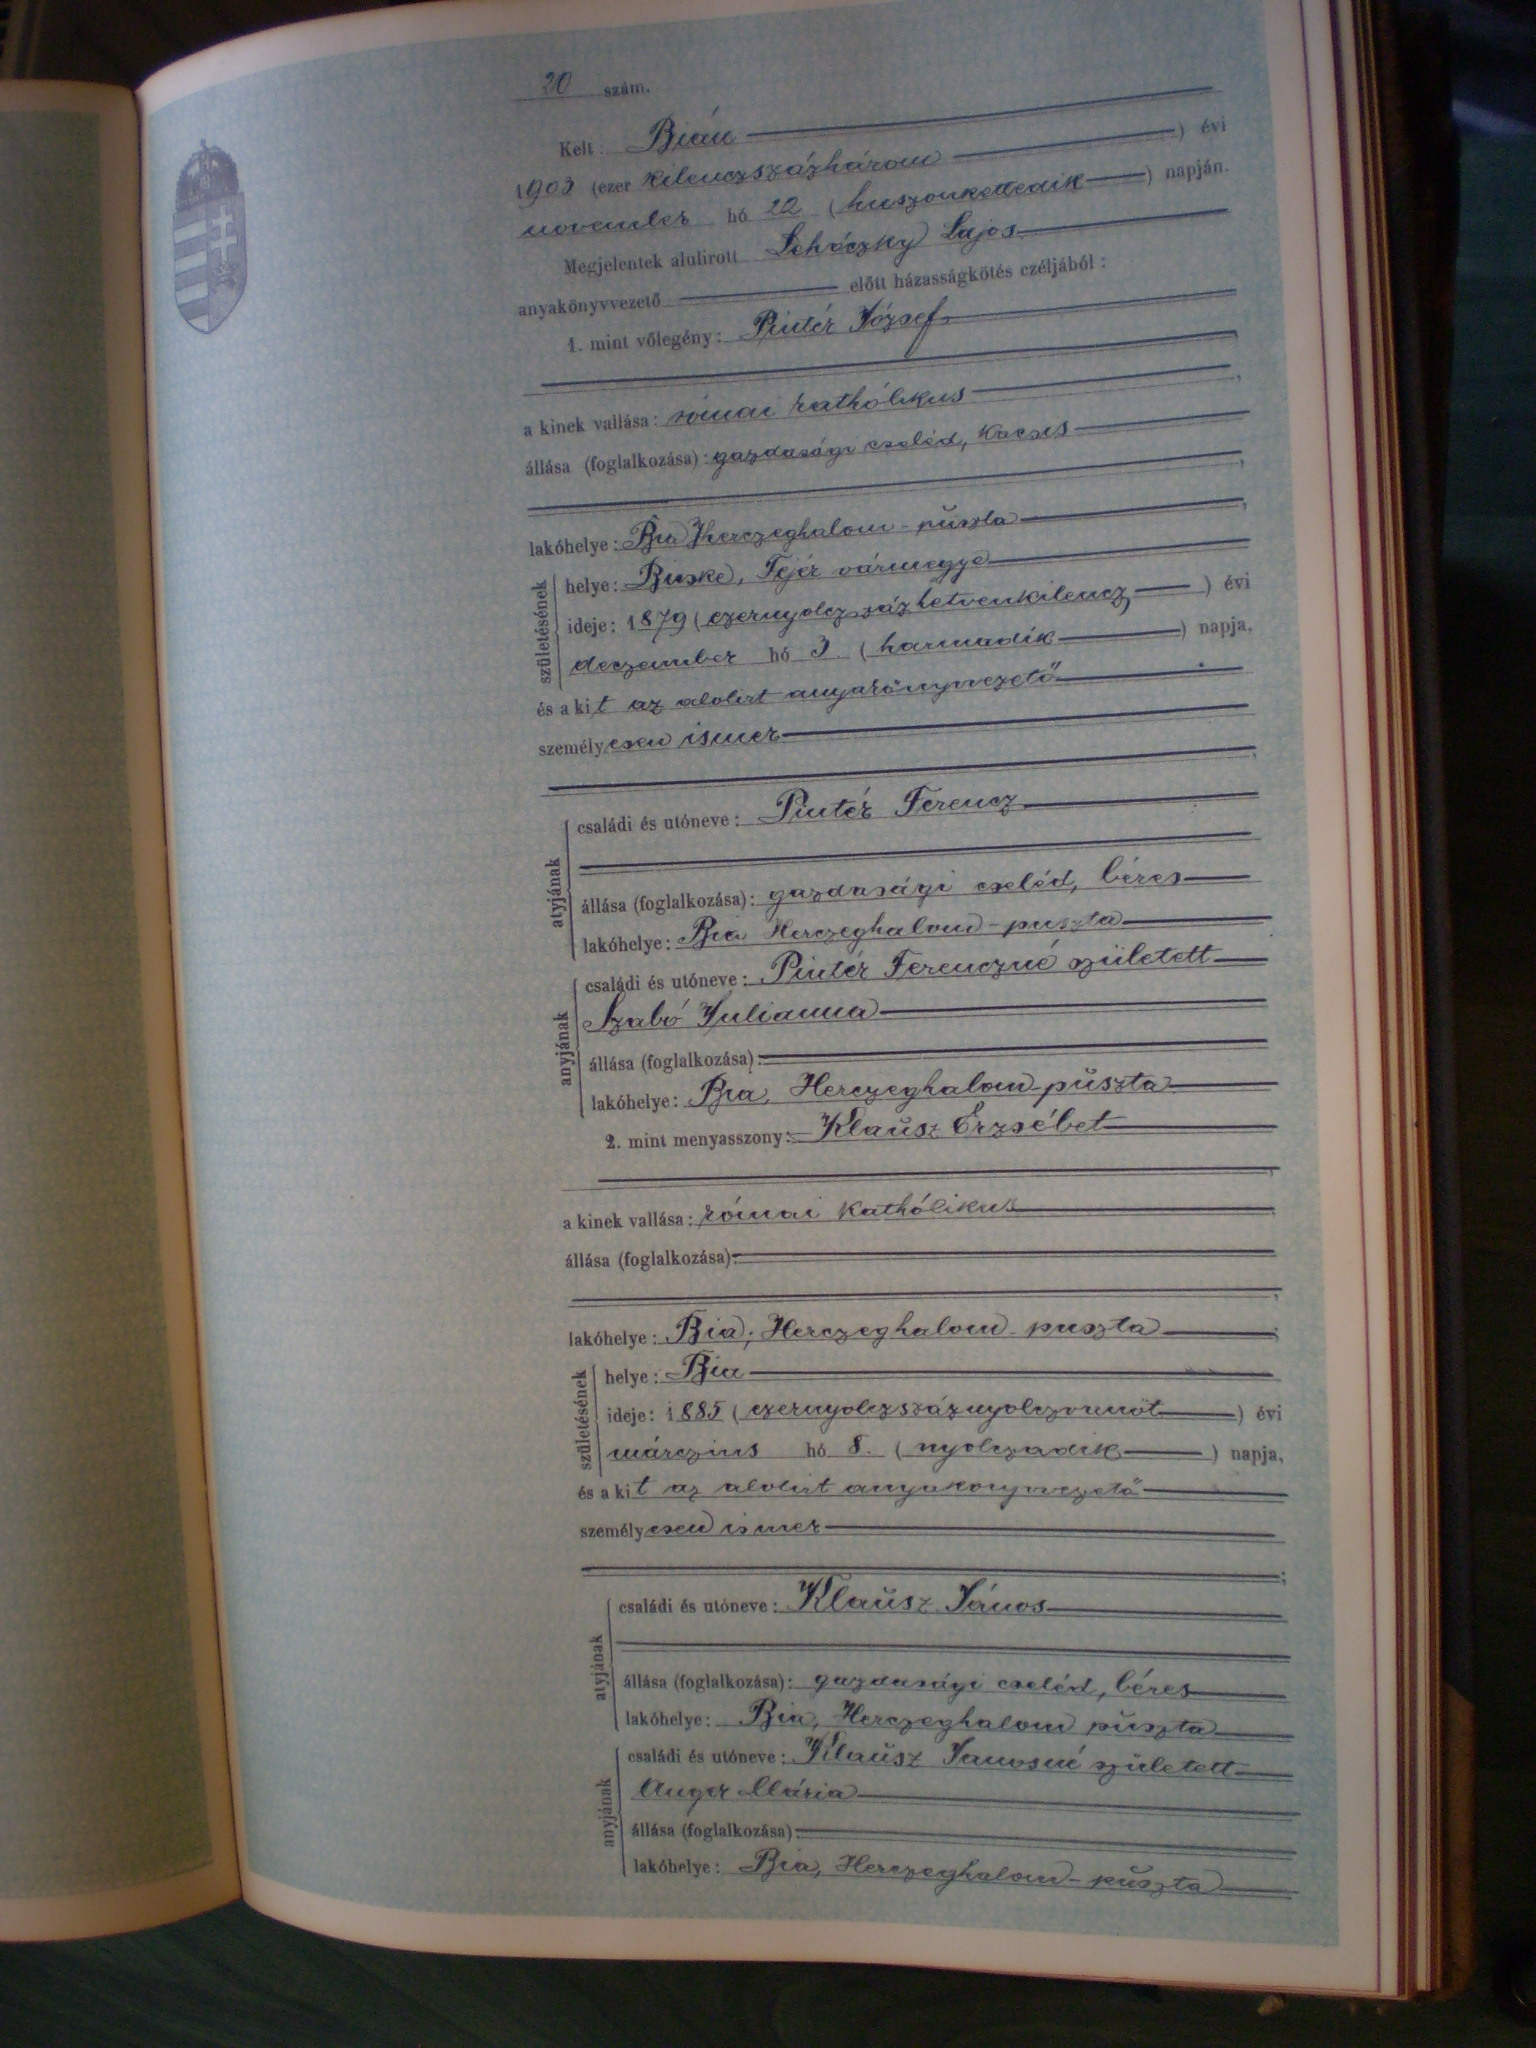 20 szám.
Kelt: Bián
1903 (ezer kilenczszázhárom ) évi
november hó 22 (huszonkettedik ) napján.
Megjelentek alulirott Lehóczky Lajos
anyakönyvvezető előtt házasságkötés czéljából:
1. mint vőlegény: Pintér József
a kinek vallása: római kathólikus
állása (foglalkozása): gazdasági cseléd, kocsis
lakóhelye: Bia Herczeghalom-puszta
születésének
helye: Bicske, Fejér vármegye
ideje: 1879 (ezernyolczszázhetvenkilencz ) évi
deczember hó 3. (harmadik ) napja,
és a kit az alolirt anyakönyvvezető
személyesen ismer
atyjának
családi és utóneve: Pintér Ferencz
állása (foglalkozása): gazdasági cseléd, béres
lakóhelye: Bia Herczeghalom-puszta
anyjának
családi és utóneve: Pintér Ferenczné született
Szabó Julianna
állása (foglalkozása):
lakóhelye: Bia, Herczeghalom-puszta
2. mint menyasszony: Klausz Erzsébet
a kinek vallása: római kathólikus
állása (foglalkozása):
lakóhelye: Bia, Herczeghalom-puszta
születésének
helye: Bia
ideje: 1885 (ezernyolczszáznyolczvanöt ) évi
márczius hó 8. (nyolczadik ) napja,
és a kit az alolirt anyakönyvvezető
személyesen ismer
atyjának
családi és utóneve: Klausz János
állása (foglalkozása): gazdasági cseléd, béres
lakóhelye: Bia, Herczeghalom puszta
anyjának
családi és utóneve: Klausz Janosné született
Anger Mária
állása (foglalkozása):
lakóhelye: Bia, Herczeghalom-puszta